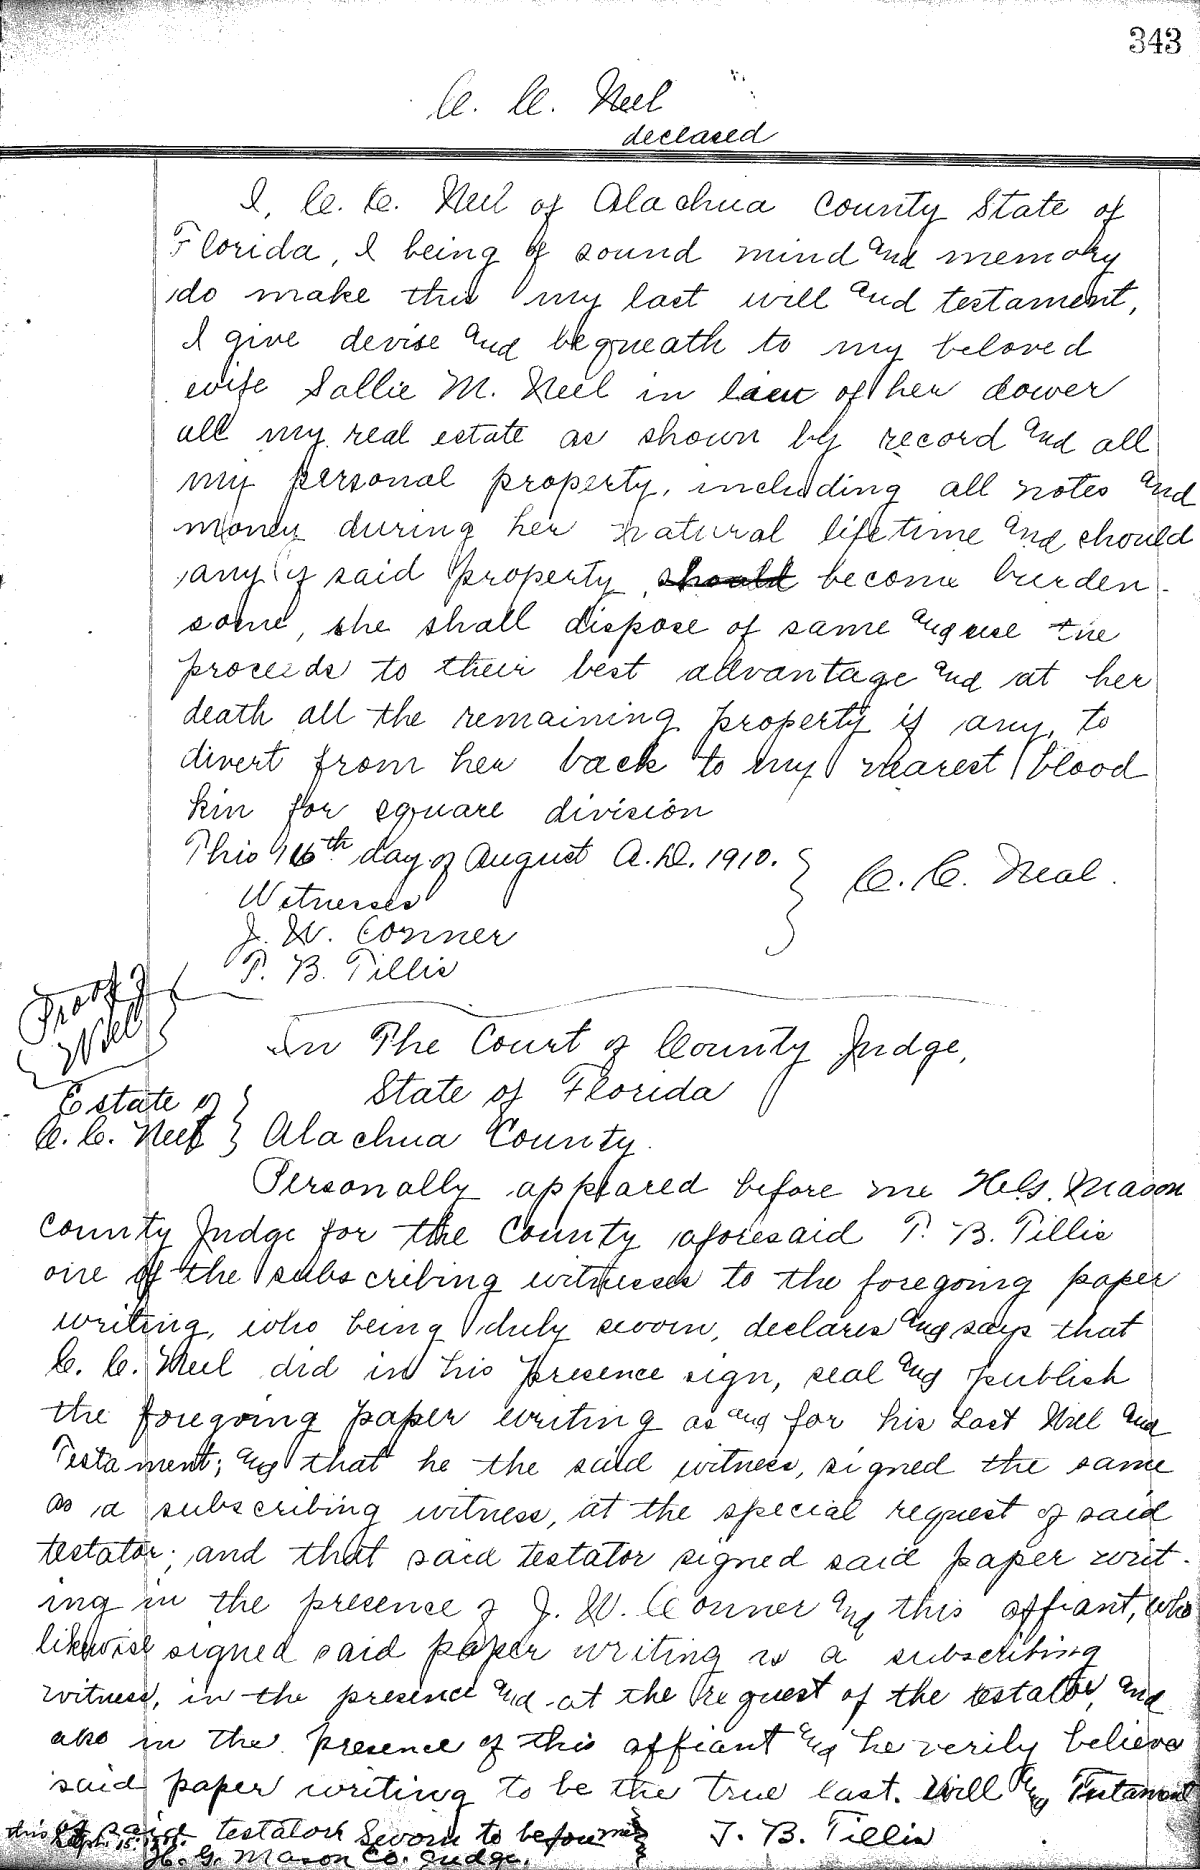 343
C. C. Neel
deceased
I, C. C. Neel of Alachua County State of
Florida, I being of sound mind and memory
do make this my last will and testament,
I give devise and bequeath to my beloved
wife Sallie M. Neel in lieu of her dower
all my real estate as shown by record and all
my personal property, including all notes and
money during her natural lifetime and should
any of said property, should become burden-
some, she shall dispose of same and use the
proceeds to their best advantage and at her
death all the remaining property if any, to
divert from her back to my nearest blood
kin for square division
This 16th day of August A.D. 1910.
C. C. Neal.
Witnesses
J. W. Conner
T. B. Tillis
Proof of
Will
In The Court of County Judge,
State of Florida
Estate of
C. C. Neel } Alachua County.
Personally appeared before me H. G. Mason
County Judge for the County aforesaid T. B. Tillis
one of the subscribing witnesses to the foregoing paper
writing, who being duly sworn, declares and says that
C. C. Neel did in his presence sign, seal and publish
the foregoing paper writing as and for his Last Will and
Testament; and that he the said witness, signed the same
as a subscribing witness, at the special request of said
testator; and that said testator signed said paper writ-
ing in the presence of J. W. Conner and this affiant, who
likewise signed said paper writing as a subscribing
witness, in the presence and at the request of the testator, and
also in the presence of this affiant and he verily believe
said paper writing to be the true last. Will and Testament
of said testator Sworn to before me T. B. Tillis
this Sept. 15.
H. G. Mason Co. Judge.